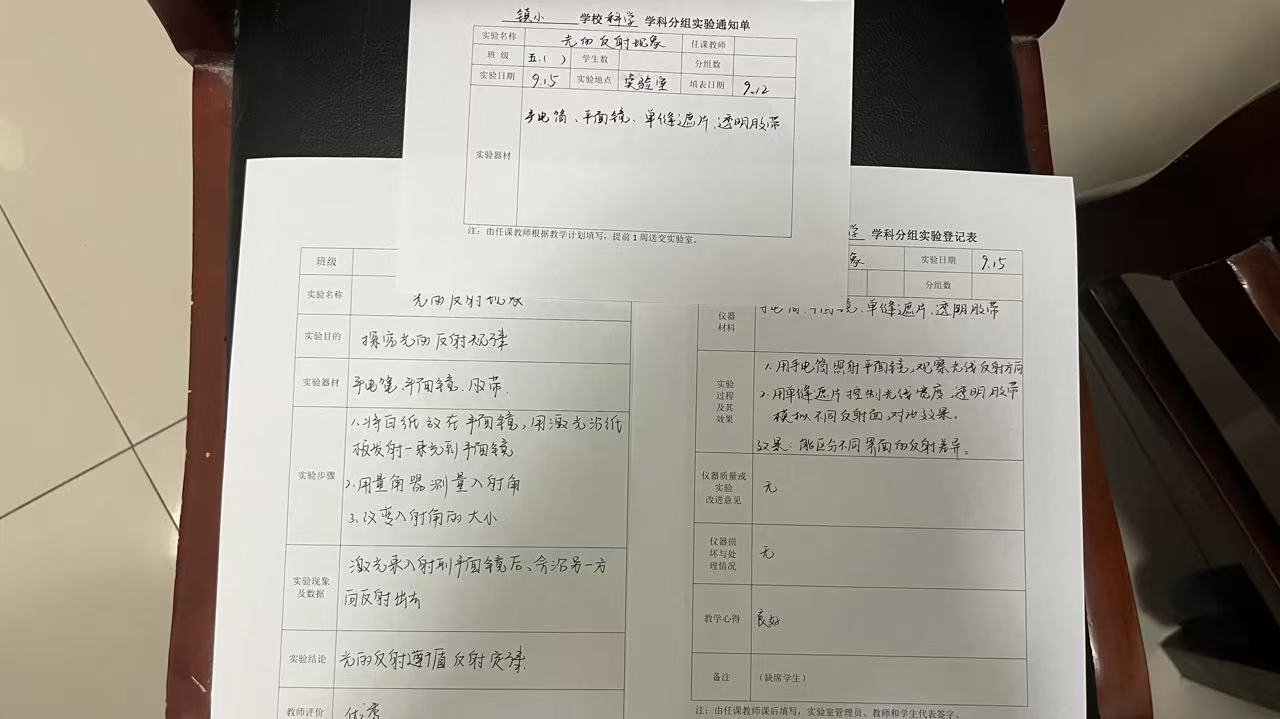 镇小 学校 科学 学科分组实验通知单
实验名称 光的反射现象 任课教师
班 级 五.( ) 学生数 分组数
实验日期 9.15 实验地点 实验室 填表日期 9.12
实验器材 手电筒、平面镜、单缝遮片、透明胶带
注：由任课教师根据教学计划填写，提前 1 周送交实验室。
班级
实验名称 光的反射现象
实验目的 探究光的反射规律
实验器材 手电筒、平面镜、胶带.
实验步骤 1.将白纸放在平面镜,用激光沿纸
板发射一束光到平面镜
2.用量角器测量入射角
3.改变入射角的大小
实验现象
及数据
激光束入射到平面镜后、会沿另一方
向反射出去
实验结论 光的反射遵循反射定律.
教师评价 优秀
学 学科分组实验登记表
象 实验日期 9.15
分组数
仪器
材料
手电筒、平面镜、单缝遮片、透明胶带
实验
过程
及其
效果
1.用手电筒照射平面镜,观察光线反射方向
2.用单缝遮片控制光线宽度,透明胶带
模拟不同反射面,对比效果。
效果：能区分不同界面的反射差异。
仪器质量或
实验
改进意见
无
仪器损
坏与处
理情况
无
教学心得 良好
备注 （缺席学生）
注：由任课教师课后填写，实验室管理员、教师和学生代表签字。